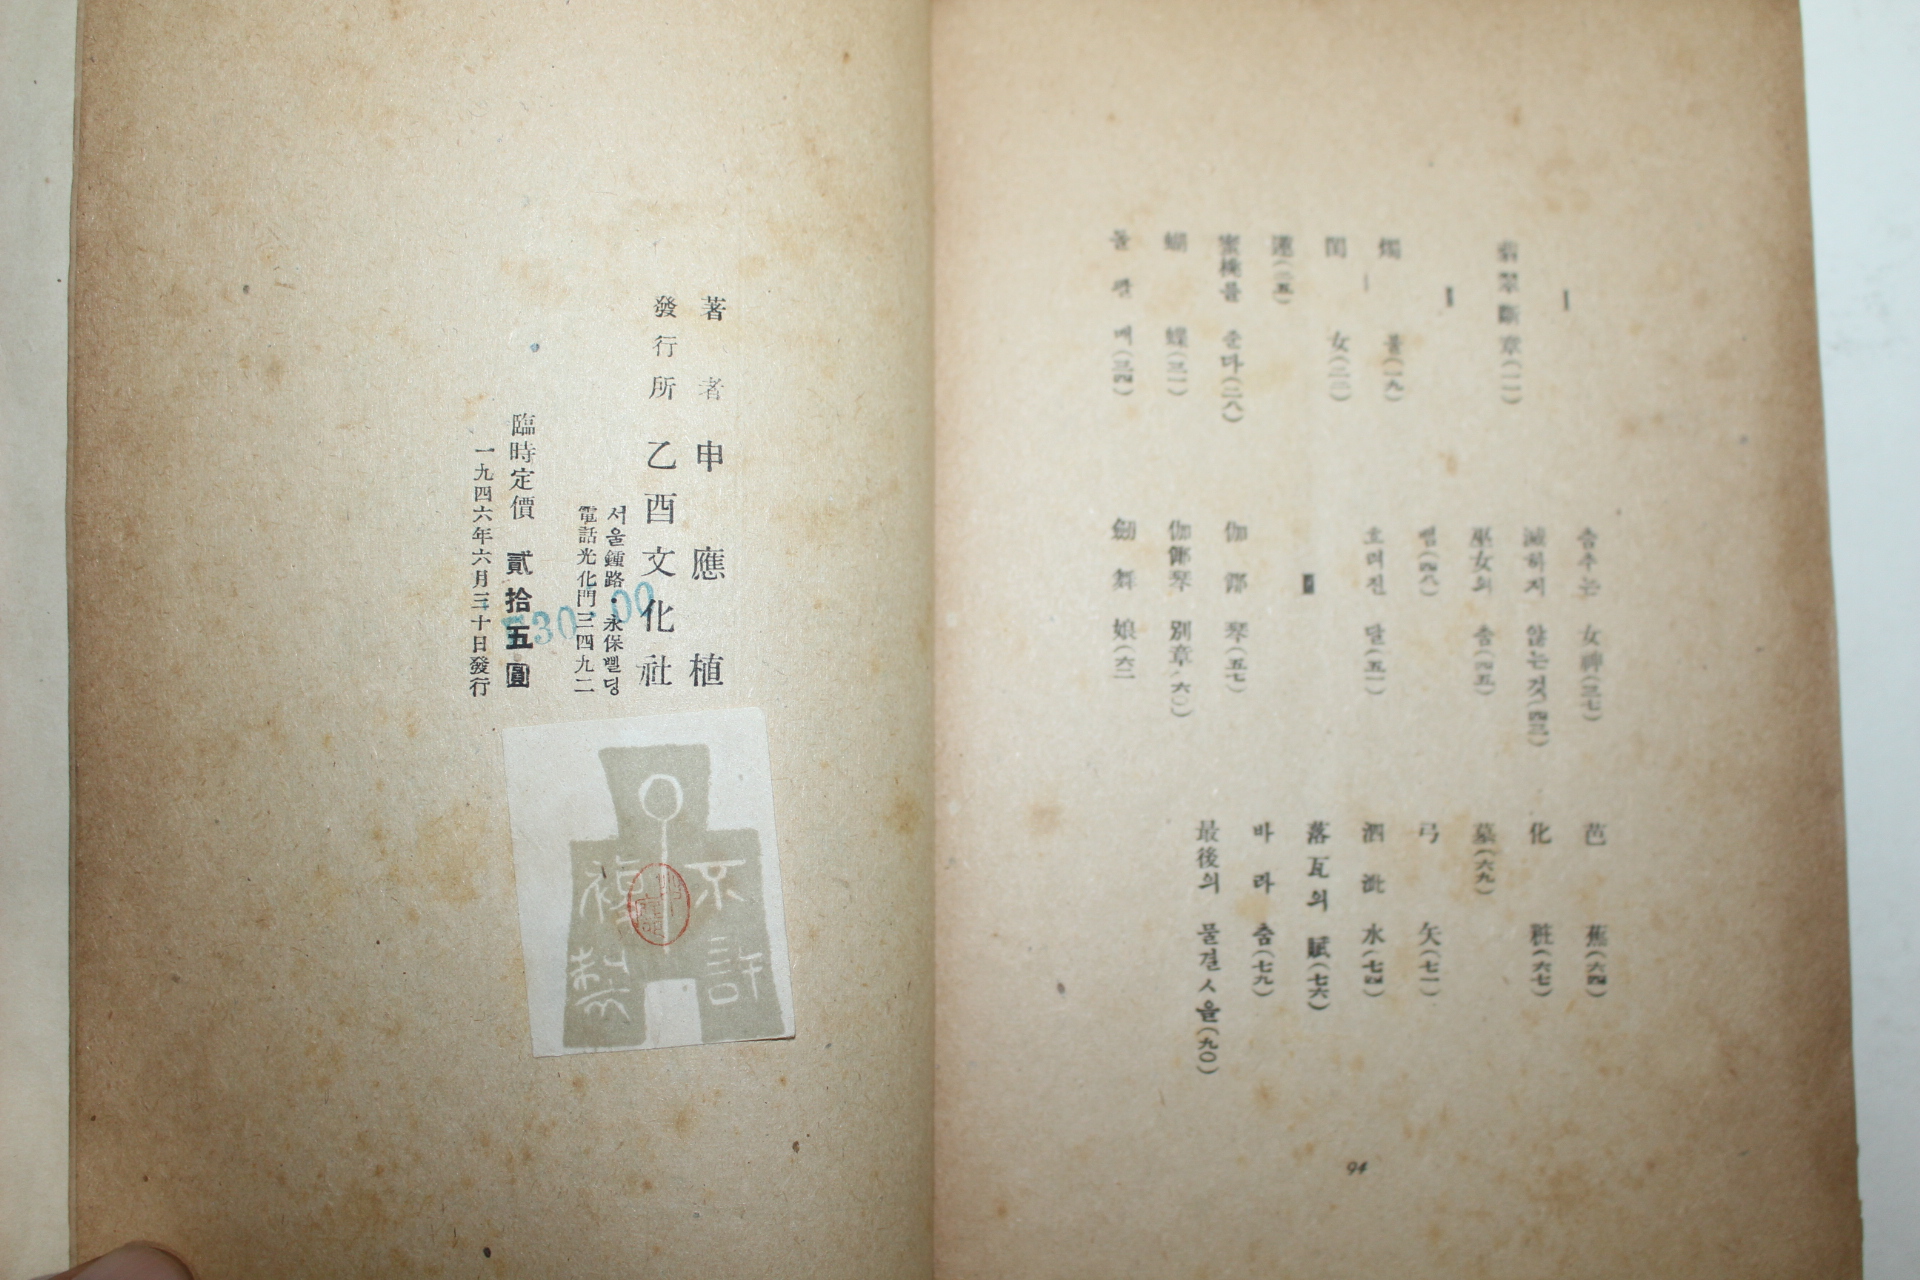 一
翡翠斷章(一一)
二
燭 불(一九)
閨 女(二二)
蓮(二五)
蜜桃를 준다(二八)
蝴 蝶(三一)
돌 팔 매(三四)
춤추는 女神(三七)
滅하지 않는것(四三)
巫女의 춤(四五)
뱀(四八)
흐려진 달(五一)
三
伽倻琴(五七)
伽倻琴別章(六〇)
劒舞娘(六二
芭 蕉(六四)
化 粧(六七)
墓(六九)
弓 矢(七一)
泗 沘 水(七四)
落瓦의 賦(七六)
바라춤(七九)
最後의 물결ㅅ을(九〇)
94
著者 申應植
發行所 乙酉文化社
서울鍾路・永保삘딩
電話光化門三四九二
30.00
臨時定價 貳拾五圓
一九四六年六月三十日發行
不許
複製